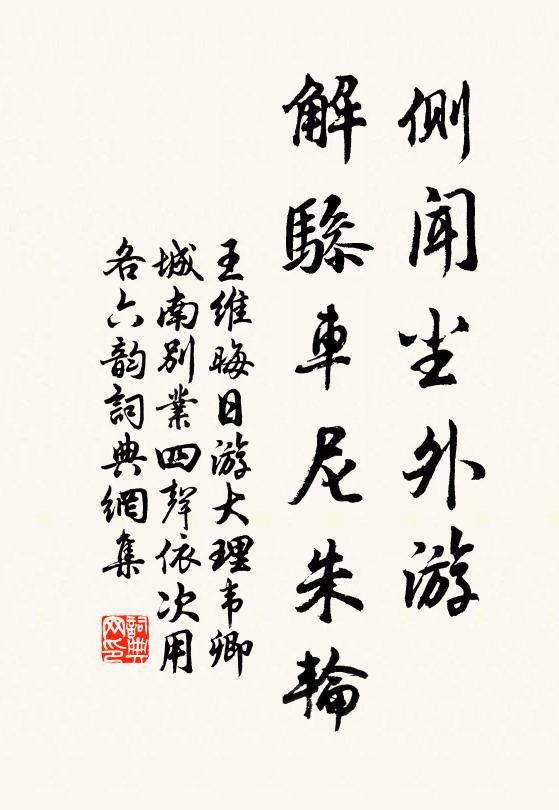 側聞尘外游
解驂車尼朱輪
王維晦日游大理韦卿
城南別業四聲依次用
各六韵詞典網集
詞典网印